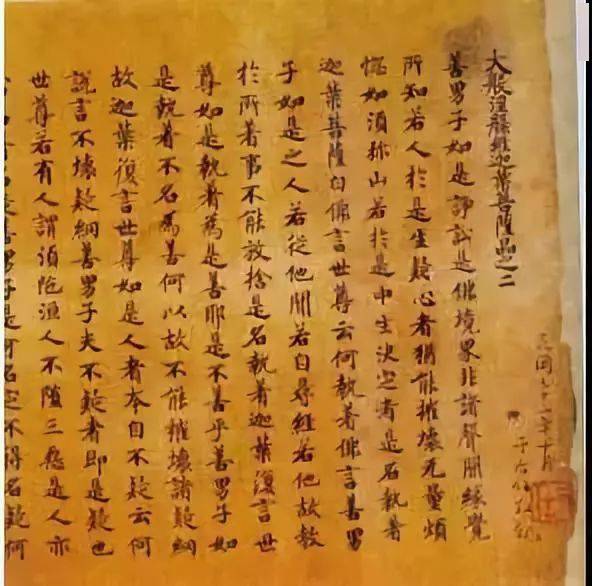 大般涅槃經迦葉菩薩品之二
善男子如是諍訟是佛境界非諸聲聞緣覺
所知若人於是生疑心者猶能摧壞无量煩
惱如須弥山若於是中生決定者是名執著
迦葉菩薩白佛言世尊云何執著佛言善男
子如是之人若從他聞若自尋經若他故教
於所著事不能放捨是名執著迦葉復言世
尊如是執著為是善耶是不善乎善男子如
是執著不名為善何以故不能摧壞諸疑網
故迦葉復言世尊如是人者本自不疑云何
說言不壞疑網善男子夫不疑者即是疑也
世尊若有人謂須陀洹人不墮三惡是人亦
名疑善男子是可名定不得名疑何
年十月
于右任